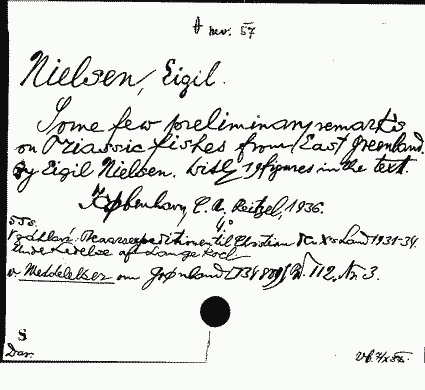 nov. 57
Nielsen, Eigil.
Some few preliminary remarks
on Triassic fishes from East Greenland.
By Eigil Nielsen. With 19 figures in the text.
København, C. A. Reitzel, 1936.
4°
Treaarsexpeditionen til Christian d. X's Land 1931-34.
Under Ledelse af Lauge Koch
v Meddelelser om Grønland Bd. 112, Nr. 3.
S
Dar.